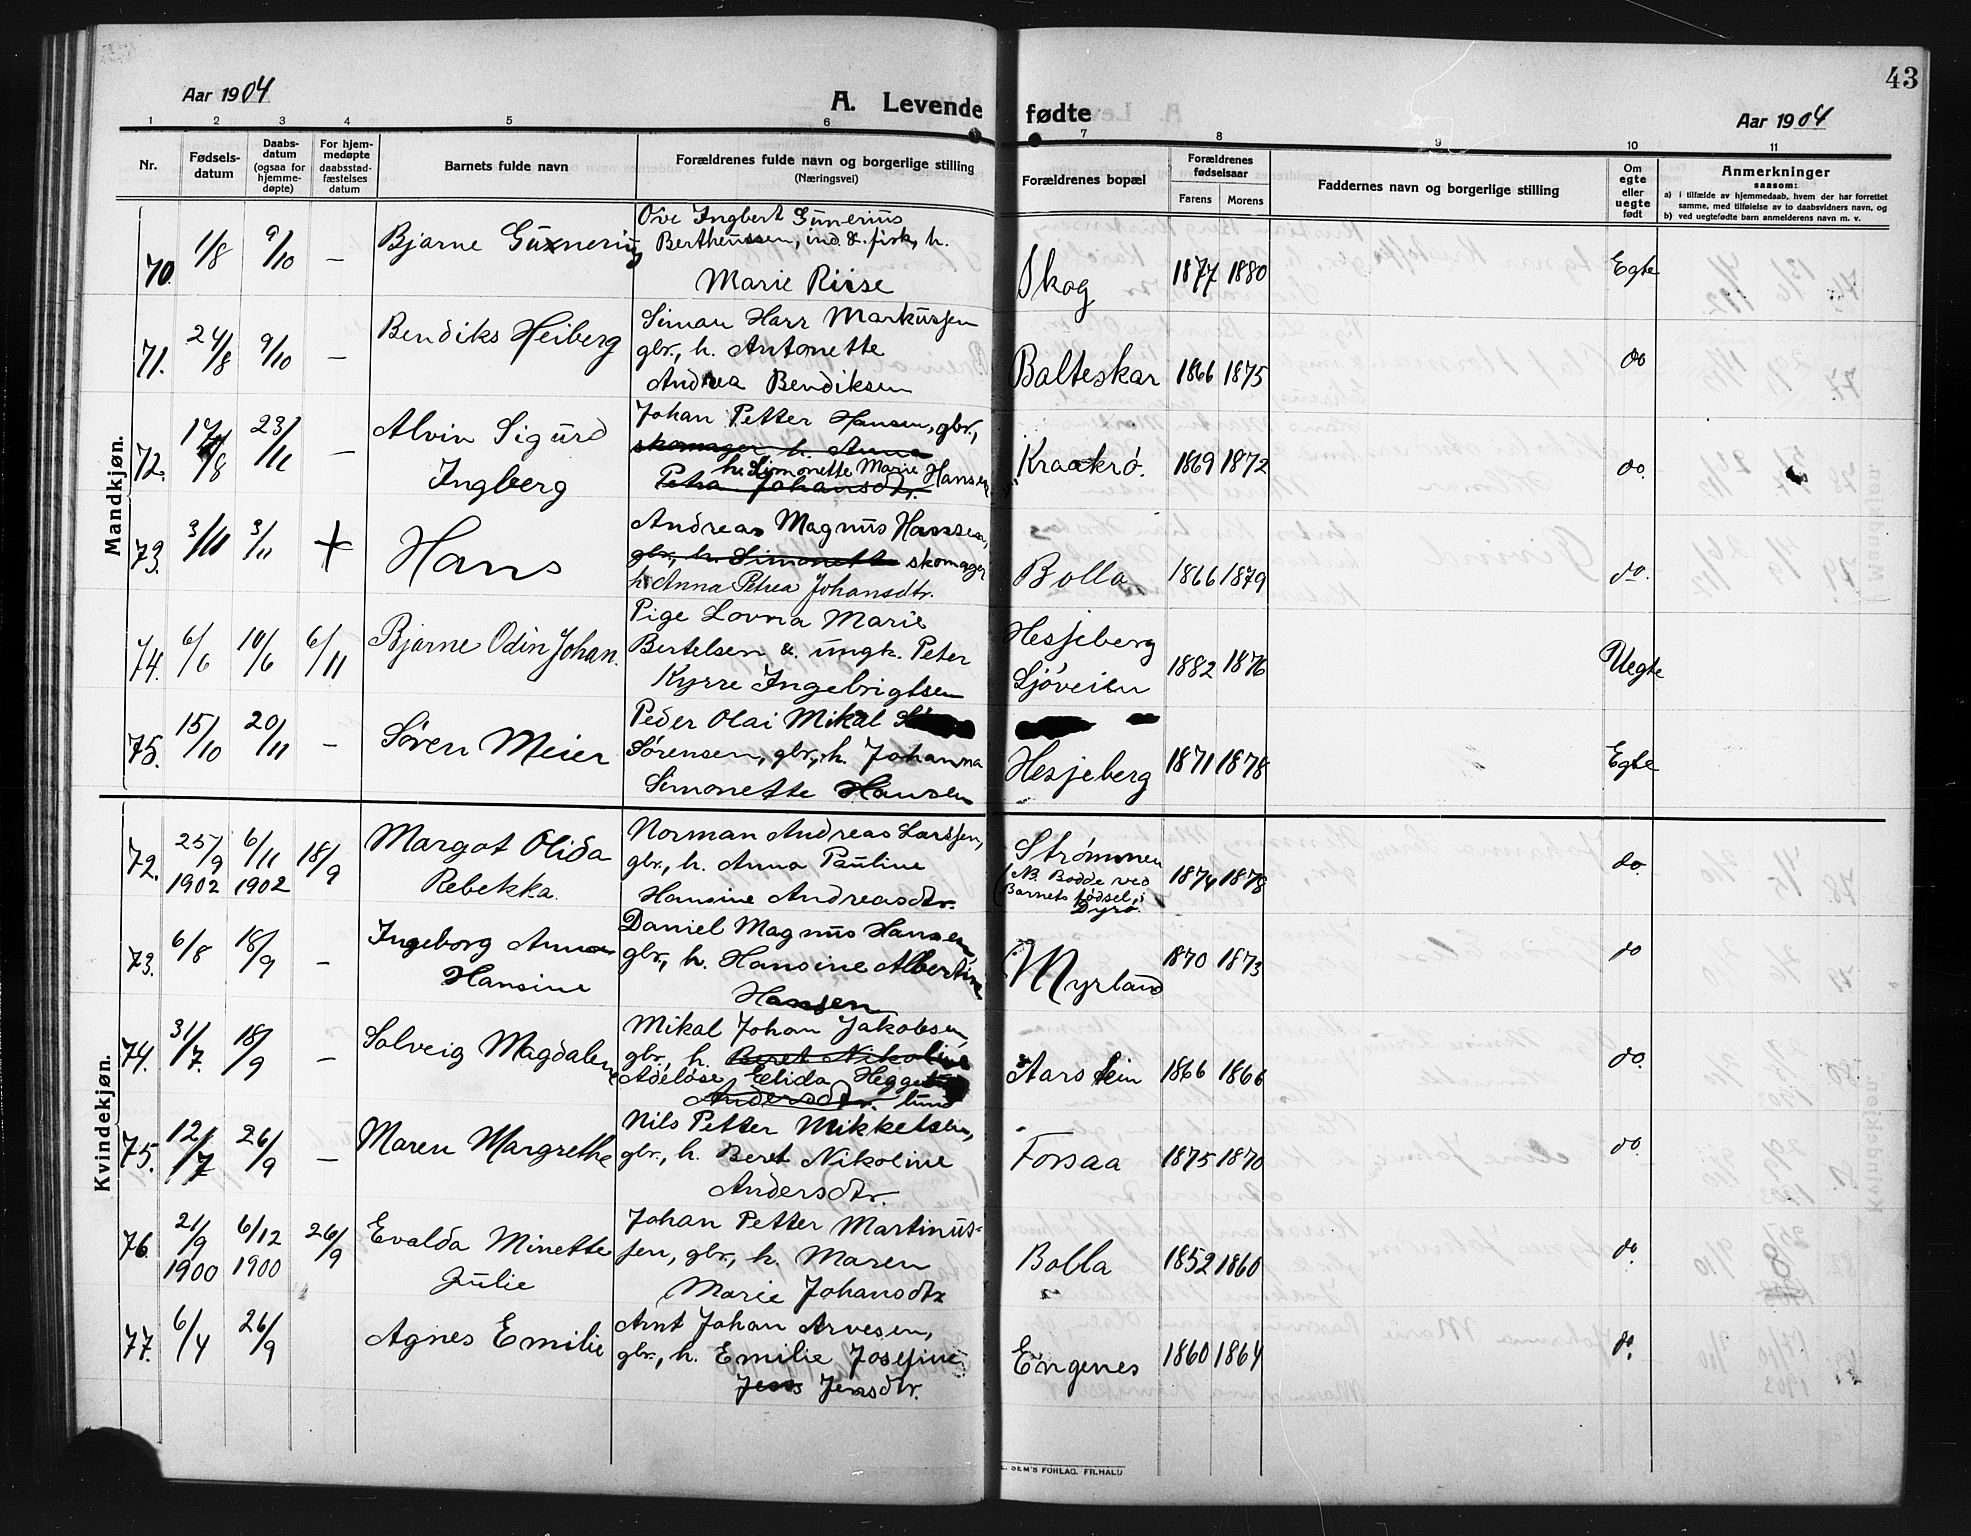 43
Aar 1904
A. Levende fødte
Aar 1904
1 2 3 4 5 6 7 8 9 10 11
Nr.
Fødsels-
datum
Daabs-
datum
(ogsaa for
hjemme-
døpte)
For hjem-
medøpte
daabsstad-
fæstelses
datum
Barnets fulde navn
Forældrenes fulde navn og borgerlige stilling
(Næringsvei)
Forældrenes bopæl
Forældrenes
fødselsaar
Farens Morens
Faddernes navn og borgerlige stilling
Om
egte
eller
uegte
født
Anmerkninger
saasom:
a) i tilfælde av hjemmedaab, hvem der har forrettet
samme, med tilføielse av to daabsvidners navn, og
b) ved uegtefødte barn anmelderens navn m. v.
Mandkjøn.
70. 1/8 9/10 — Bjarne Gunerius
Ove Ingbert Gunerius
Bertheussen, ind. & fisk, h.
Marie Riise
Skog 1877 1880 Egte
71. 24/8 9/10 — Bendiks Heiberg
Simon Harr Markussen
gbr., h. Antonette
Andrea Bendiksen
Balteskar 1866 1875 do
72. 17/8 23/11 — Alvin Sigurd
Ingberg
Johan Petter Hansen, gbr.,
skomager h. Anna
h. Simonette Marie Hansen
Petra Johansdtr.
Kraakrø. 1869 1872 do.
73. 3/11 3/11 + Hans
Andreas Magnus Hansen,
gbr., h. Simonette skomager
h. Anna Petrea Johansdtr.
Bolla 1866 1879 do.
74. 6/6 10/6 6/11 Bjarne Odin Johan.
Pige Lovna Marie
Bertelsen & ungk. Peter
Kyrre Ingebrigtsen
Hesjeberg
Sjøveien
1882 1876 Uegte
75. 15/10 20/11 — Søren Meier
Peder Olai Mikal
Sørensen, gbr., h. Johanna
Simonette Hansen
Hesjeberg 1871 1878 Egte
Kvindekjøn.
72. 25/9 1902 6/11 1902 18/9 Margot Olida
Rebekka.
Norman Andreas Larssen,
gbr., h. Anna Pauline
Hansine Andreasdtr.
Strømmen
(NB. Bodde ved
Barnets fødsel i
Dyrø.
1874 1878 do.
73. 6/8 18/9 — Ingeborg Anna
Hansine
Daniel Magnus Hansen
gbr., h. Hansine Albertine
Hansen
Myrland 1870 1873 do
74. 31/7. 18/9 — Solveig Magdalene
Mikal Johan Jakobsen,
gbr., h. Beret Nikoline
Adeløse Elida Hegge
Andersdtr. lund
Aarstein 1866 1866 do.
75. 12/7 26/9 — Maren Margrethe
Nils Petter Mikkelsen,
gbr., h. Beret Nikoline
Andersdtr.
Forsaa 1875 1870 do.
76. 21/9 1900 6/12 1900 26/9 Evalda Minette
Julie
Johan Petter Martinus-
sen, gbr., h. Maren
Marie Johansdtr
Bolla 1852 1860 do.
77. 6/4 26/9 Agnes Emilie
Arnt Johan Arvesen,
gbr., h. Emilie Josefine
Jens Jensdtr.
Engenes 1860 1864 do.
SEM'S FORLAG. FR.HALD